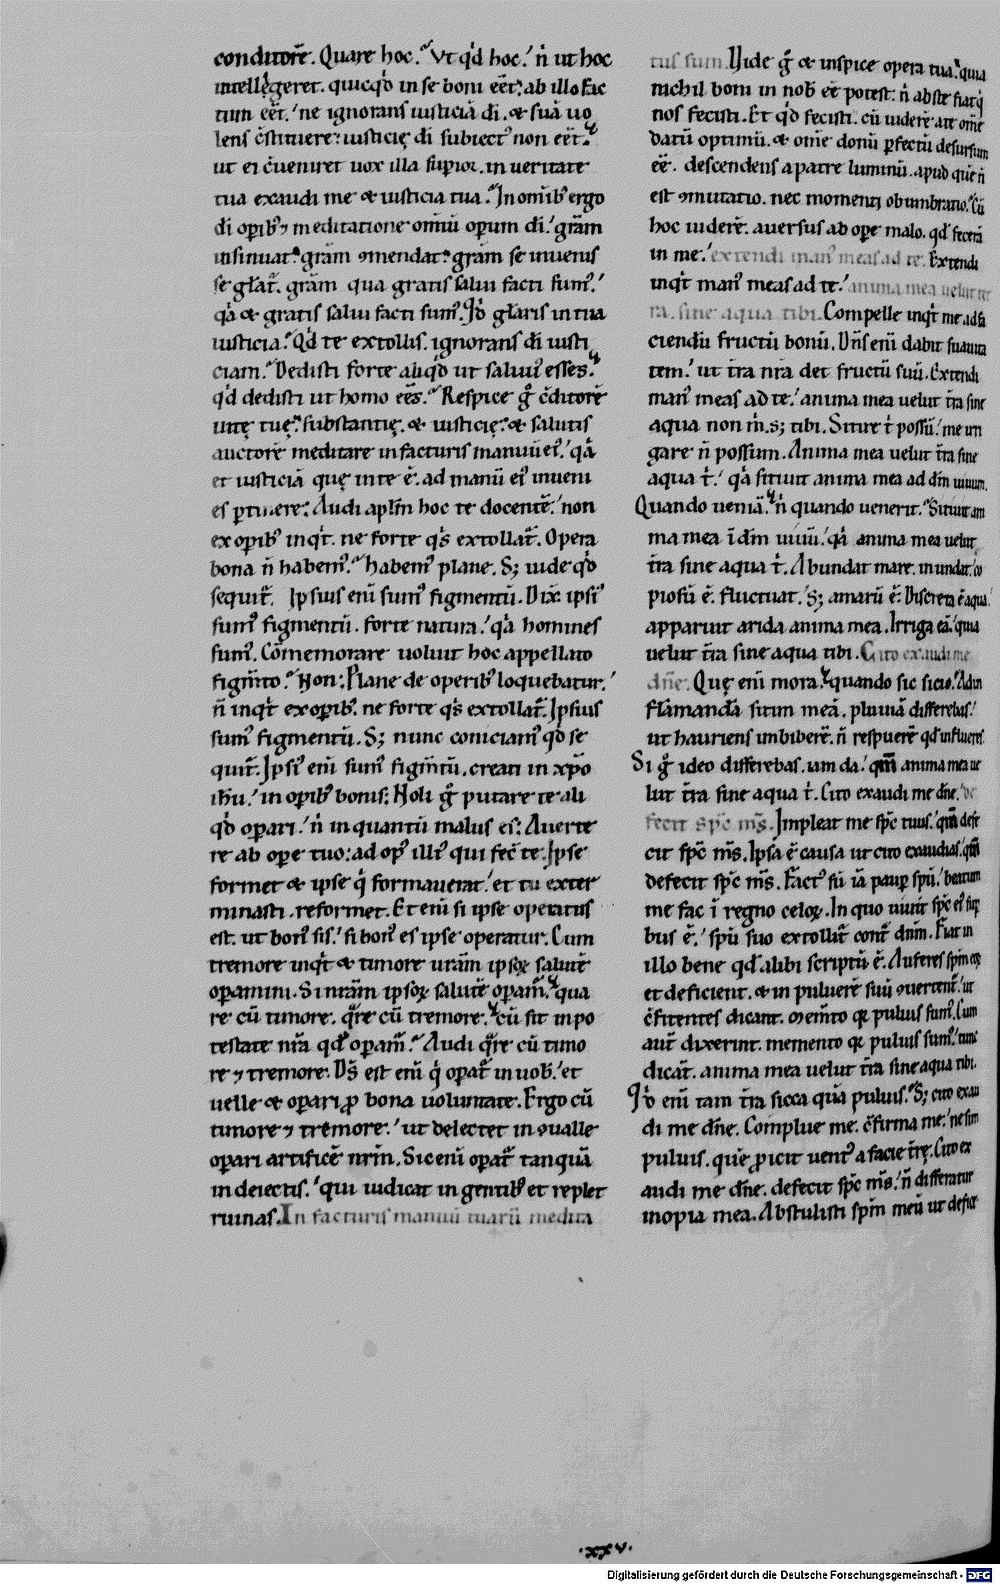 conditorē. Quare hoc. Vt qd hoc. n̄ ut hoc
intellegeret. quicqd in se boni eēt. ab illo fac
tum eēt. ne ignorans iusticiā di. & suā uo
lens cstituere. iusticię di subiect' non eēt.
ut ei cueniret uox illa supior. in ueritate
tua exaudi me & iusticia tua. In omib; ergo
di opib; 7 meditatione omiū opum di. grām
insinuat. grām 9mendat. grām se inuenis
se glat. grām qua gratis salui facti sum'.
qa & gratis salui facti sum'. Id glaris in tua
iusticia. Qd te extollis. ignorans di iusti
ciam. Dedisti forte aliqd ut saluus esses.
qd dedisti ut homo eēs. Respice g cditorē
uitę tuę. substantię. & iusticię. & salutis
auctorē meditare in facturis manuū ei'. qa
et iusticiā quę in te ē. ad manū ei' inueni
es ptinere. Audi aplm hoc te docentē. non
ex opib' inqt. ne forte qs extollat. Opera
bona n̄ habem'. habem' plane. S; uide qd
sequit. Ipsius eni sum' figmentū. Dix. ipsi'
sum' figmentū. forte natura. qa homines
sum'. Cōmemorare uoluit hoc appellato
figmto. Non. Plane de operib' loquebatur.
n̄ inqt ex opib'. ne forte qs extollat. Ipsius
sum' figmentū. S; nunc coniciam' qd se
quit. Ipsi' eni sum' figmtū. creati in xpo
ihu. in opib' bonis. Noli g putare te ali
qd opari. n̄ in quantū malus es. Auerte
re ab ope tuo. ad op' illi' qui fec te. Ipse
formet & ipse q formauerat. et tu exter
minasti. reformet. Et eni si ipse operatus
est. ut bon' sis. si bon' es ipse operatur. Cum
tremore inqt & timore uram ipsoȝ salutē
opamini. Si nram ipsoȝ salutē opam'. qua
re cū timore. qre cū tremore. cū sit in po
testate nra qd opam'. Audi qre cū timo
re 7 tremore. Ds est eni q opat in uob'. et
uelle & opari p bona uoluntate. Ergo cū
timore 7 tremore. ut delectet in 9ualle
opari artificē nrm. Sic eni opat tanquā
in deiectis. qui iudicat in gentib' et replet
ruinas. In facturis manuū tuarū medita
tus sum. Uide g & inspice opera tua. quia
nichil boni in nob' eē potest. n̄ abs te fiat q
nos fecisti. Et qd fecisti. cū uiderē a te omē
datū optimū. & omē donū pfectū desursum
eē. descendens a patre luminū. apud quē n̄
est 9mutatio. nec momenti obumbratio. Cū
hoc uiderē. auersus ab ope malo. qd fecerā
in me. extendi man' meas ad te. Extendi
inqt man' meas ad te. anima mea uelut ter
ra. sine aqua tibi. Compelle inqt me ad fa
ciendū fructū bonū. Dns eni dabit suauita
tem. ut tra nra det fructū suū. Extendi
man' meas ad te. anima mea uelut tra sine
aqua non m. s; tibi. Sitire t possū. me irri
gare n̄ possum. Anima mea uelut tra sine
aqua t. qa sitiuit anima mea ad dm uiuum.
Quando ueniā. n̄ quando uenerit. Sitiuit ani
ma mea i dm uiuū. qa anima mea uelut
tra sine aqua t. Abundat mare. inundat. co
piosū ē. fluctuat. S; amarū ē. Discreta ē aqua.
apparuit arida anima mea. Irriga eā. quia
uelut tra sine aqua tibi. Cito exaudi me
dne. Quę eni mora. quando sic sitio. Ad in
flammandā sitim meā. pluuiā differebas.
ut hauriens imbiberē. n̄ respuerē qd influeres.
Si g ideo differebas. iam da. qm anima mea ue
lut tra sine aqua t. Cito exaudi me dne. de
fecit spc ms. Impleat me spc tuus. qm defe
cit spc ms. Ipsa ē causa ut cito exaudias. qm
defecit spc ms. Fact' su ia paup spu. beatum
me fac i regno celoȝ. In quo uiuit spc ei' sup
bus ē. spu suo extollit cont dnm. Fiat in
illo bene qd alibi scriptū ē. Auferes spm eoȝ
et deficient. & in puluerē suū 9uertent. ut
cfitentes dicant. memto qȝ puluis sum'. Cum
aut dixerint. memento qȝ puluis sum'. tunc
dicat. anima mea uelut tra sine aqua tibi.
Qd eni tam tra sicca quā puluis. S; cito exau
di me dne. Complue me. cfirma me. ne sim
puluis. quē picit uent' a facie trę. Cito ex
audi me dne. defecit spc ms. n̄ differatur
inopia mea. Abstulisti spm meū ut defice
.xxv.
Digitalisierung gefördert durch die Deutsche Forschungsgemeinschaft - DFG